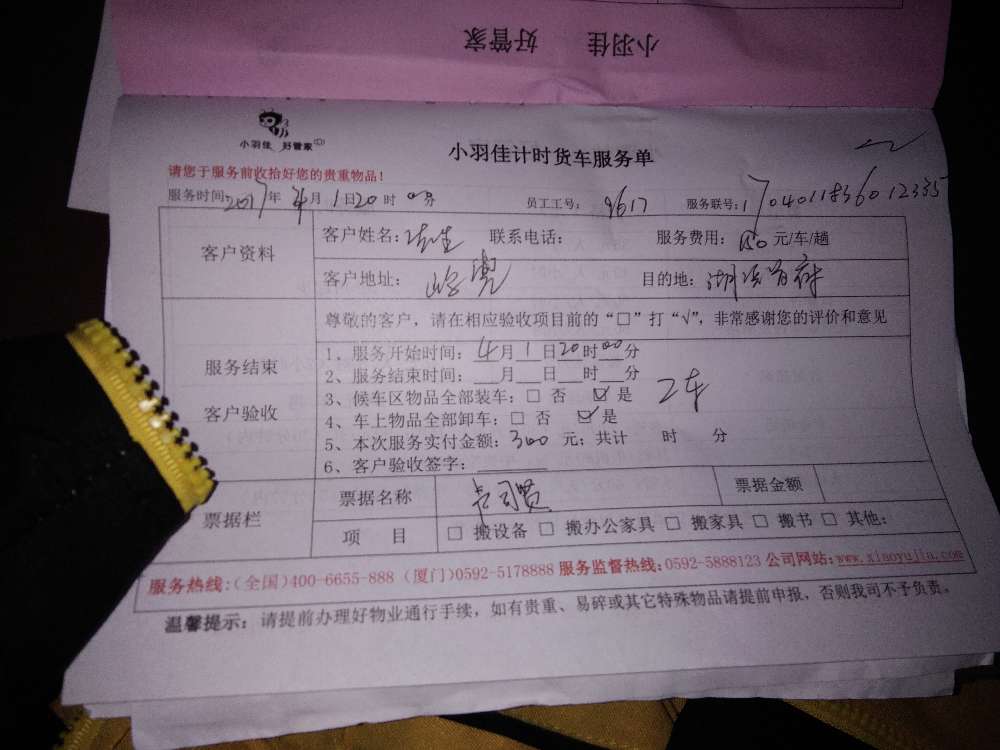 小羽佳 好管家
小羽佳 好管家
小羽佳计时货车服务单
请您于服务前收拾好您的贵重物品!
服务时间:2017年4月1日20时00分 员工工号: 9617 服务联号:1704011836012335
客户资料
客户姓名: 联系电话: 服务费用:150元/车/趟
客户地址: 目的地:湖滨首府
服务结束
客户验收
尊敬的客户,请在相应验收项目前的“□”打“√”,非常感谢您的评价和意见
1、服务开始时间:4月1日20时00分
2、服务结束时间:___月___日___时___分
3、候车区物品全部装车:□ 否 ☑ 是 2车
4、车上物品全部卸车:□ 否 ☑ 是
5、本次服务实付金额:300元;共计 时 分
6、客户验收签字:
票据栏
票据名称 票据金额
项 目 □ 搬设备 □ 搬办公家具 □ 搬家具 □ 搬书 □ 其他:
服务热线:(全国)400-6655-888 (厦门)0592-5178888 服务监督热线:0592-5888123 公司网站:www.xiaoyujia.com
温馨提示:请提前办理好物业通行手续,如有贵重、易碎或其它特殊物品请提前申报,否则我司不予负责。